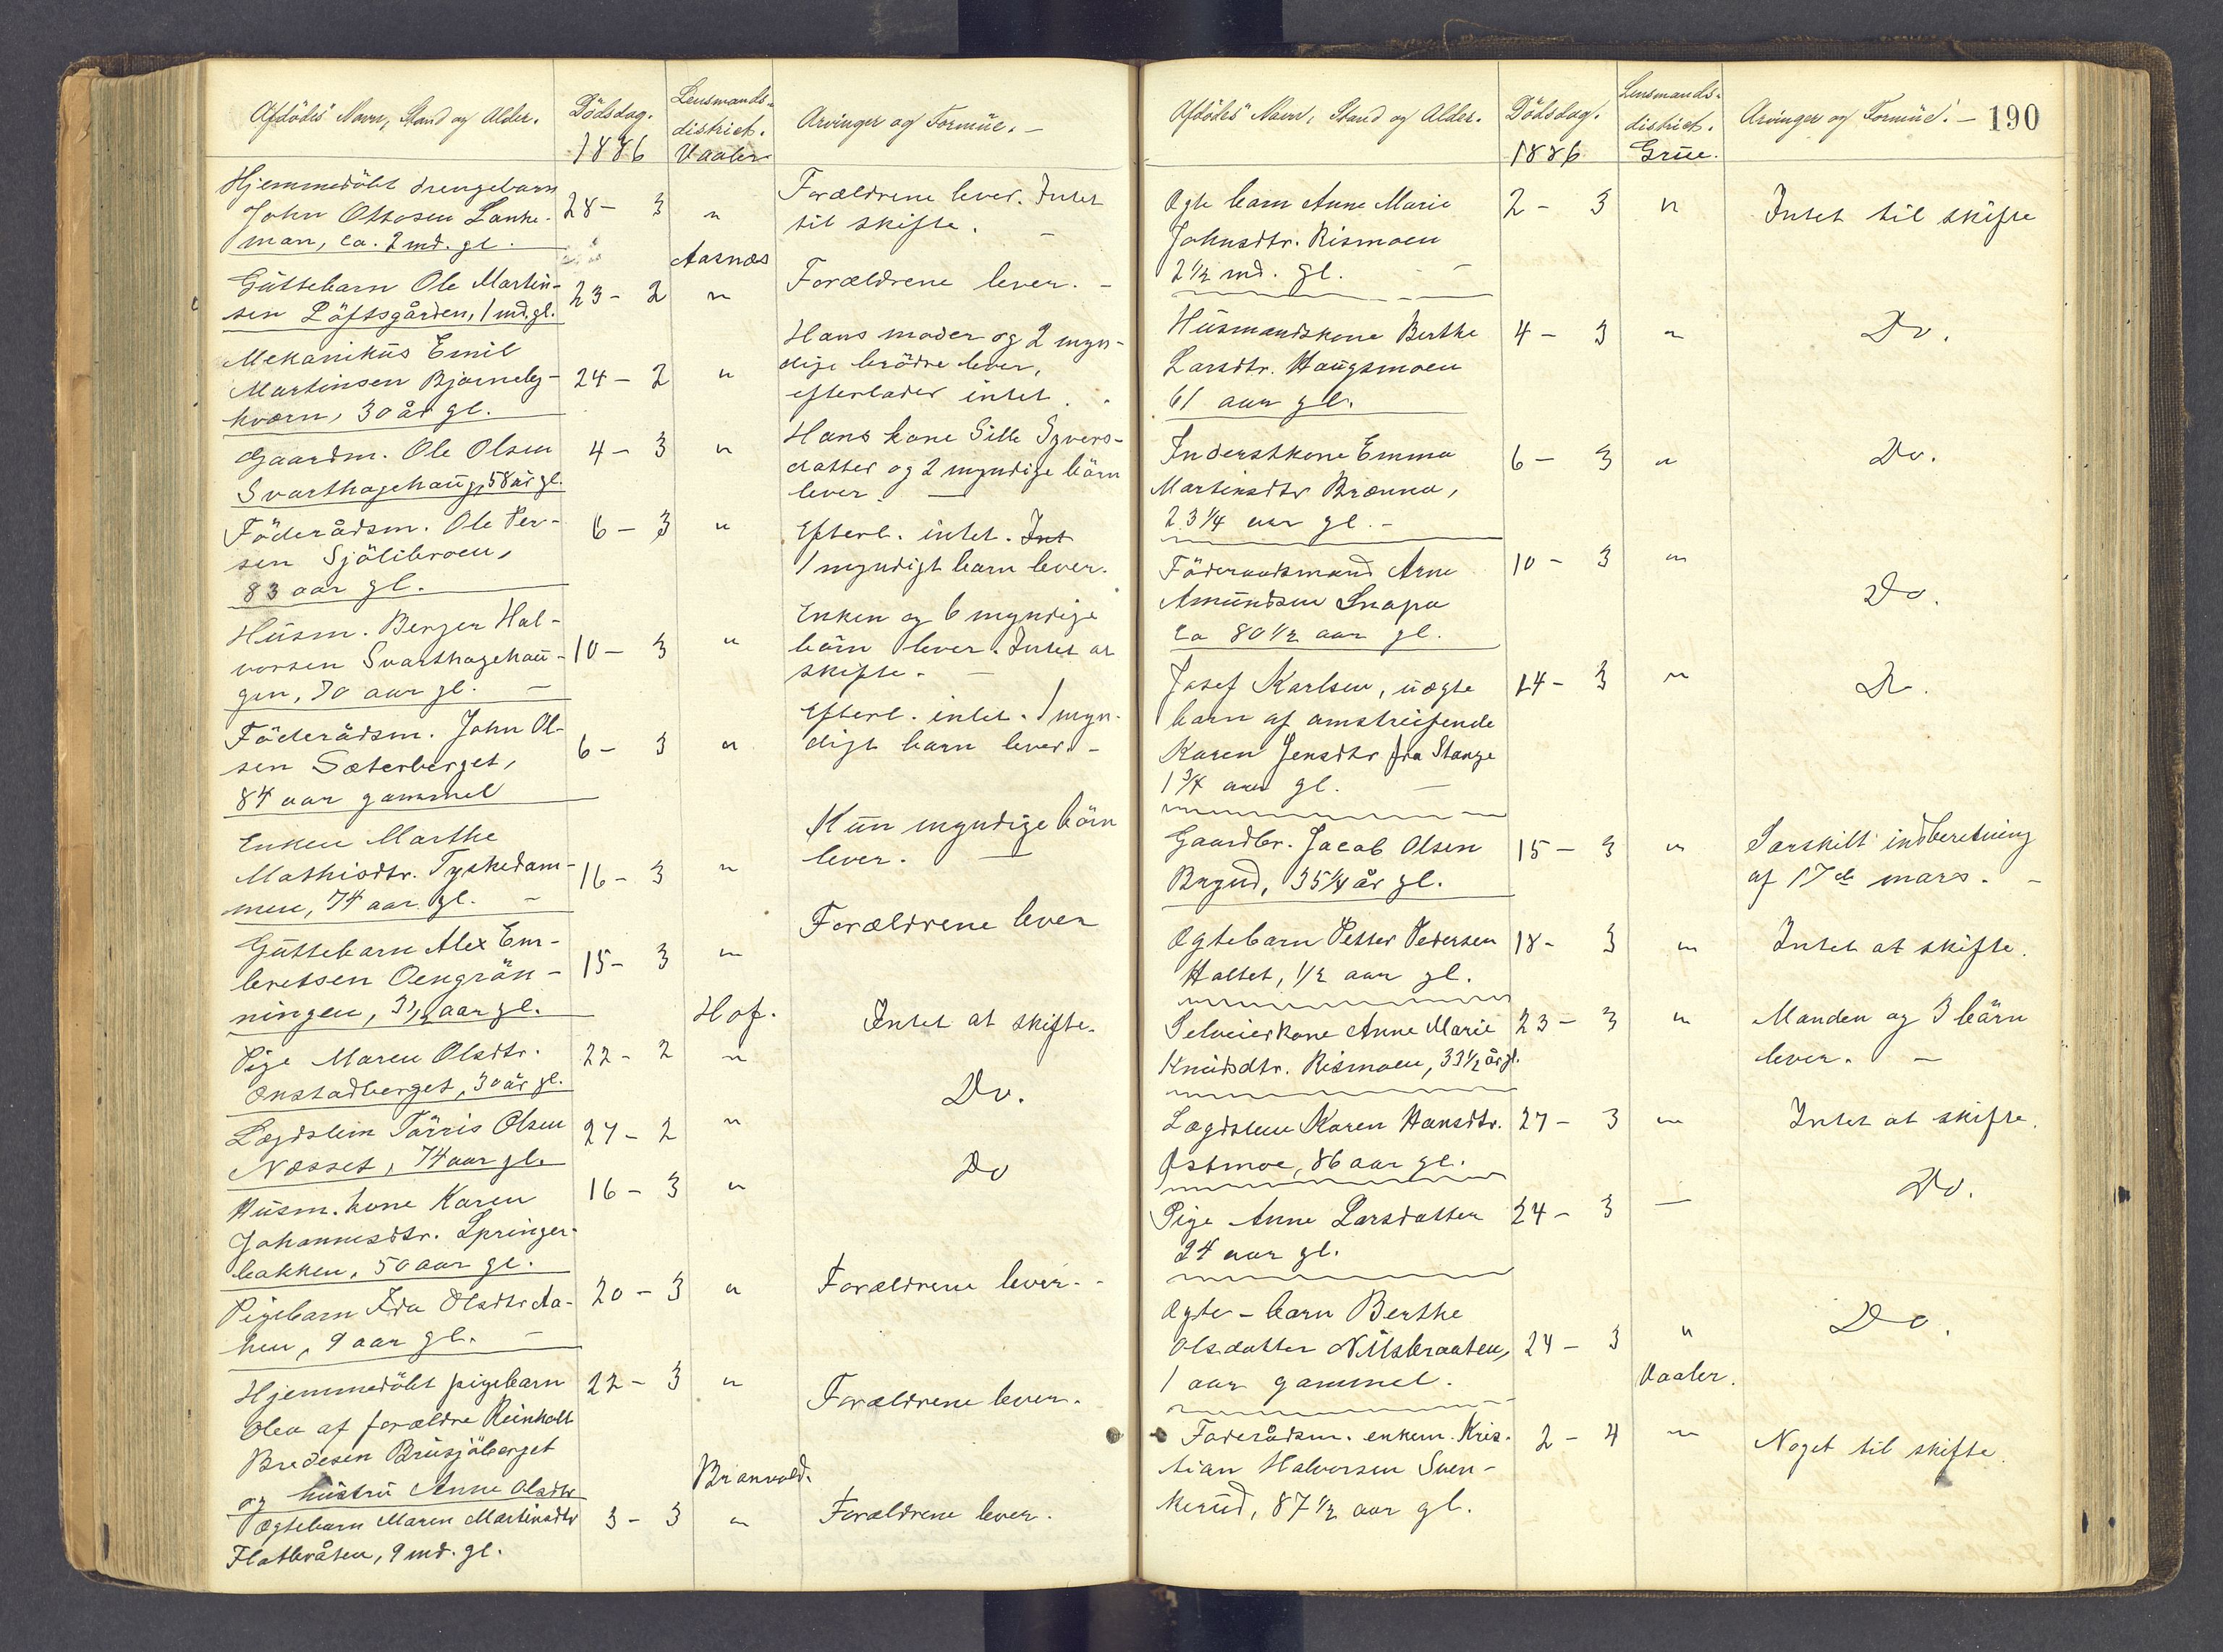 Afdödes Navn, Stand og Alder.
Dödsdag.
1886
Lensmands-
district.
Vaaler
Arvinger og Formüe. —
Hjemmedöbt drengebarn
John Ottosen Lanke-
man, ca. 2 md. gl.
28 - 3
"
Forældrene lever. Intet
til skifte. —
Aasnæs
Guttebarn Ole Martin-
sen Löftsgården, 1 md. gl.
23 - 2
"
Forældrene lever. -
Mekanikus Emil
Martinsen Bjørneby-
kværn, 30 år gl.
24 - 2
"
Hans moder og 2 myn-
dige brödre lever,
efterlader intet.
Gaardm. Ole Olsen
Svarthagehaug, 58 år gl.
4 - 3
"
Hans kone Sille Syvers-
datter og 2 myndige börn
lever. —
Föderådsm. Ole Per-
sen Sjölibroen,
83 aar gl.
6 - 3
"
Efterl. intet. Int
1 myndigt barn lever.
Husm. Berger Hal-
vorsen Svarthagehau-
gen, 70 aar gl. —
10 - 3
"
Enken og 6 myndige
börn lever. Intet at
skifte. —
Föderådsm. John Ol-
sen Sæterberget,
84 aar gammel
6 - 3
"
Efterl. intet. 1 myn-
digt barn lever. -
Enken Marthe
Mathisdtr. Tyskedam-
men, 74 aar gl. -
16 - 3
"
Kun myndige börn
lever. —
Guttebarn Alex Em-
bretsen Oengrön-
ningen, 3 1/2 aar gl.
15 - 3
"
Forældrene lever
Hof.
Pige Maren Olsdtr.
Onstadberget, 30 år gl.
22 - 2
"
Intet at skifte.
Lægdslem Törris Olsen
Næsset, 74 aar gl.
27 - 2
"
Do.
Husm. kone Karen
Johannesdtr. Springer-
bakken, 50 aar gl.
16 - 3
"
Do
Pigebarn Ida Olsdtr Aa-
hen, 9 aar gl. —
20 - 3
"
Forældrene lever. -
Hjemmedöbt pigebarn
Olea af forældre Reinholt
Bredesen Brusjöberget
og hustru Anne Olsdtr
22 - 3
"
Forældrene lever.
Branvold.
Ægtebarn Maren Martinsdtr
Flatbråten, 9 md. gl.
3 - 3
"
Forældrene lever.
Afdödes Navn, Stand og Alder.
Dödsdag.
1886
Lensmands-
district.
Grue.
Arvinger og Formüe. —
190
Ægte barn Anne Marie
Johnsdtr. Rismoen
2 1/2 md. gl. —
2 - 3
"
Intet til skifte
Husmandskone Berthe
Larsdtr. Haugsmoen
61 aar gl.
4 - 3
"
Do.
Inderstkone Emma
Martinsdtr Brænna,
23 1/4 aar gl. -
6 - 3
"
Do.
Föderaadsmand Arne
Amundsen Snapa
ca 80 1/2 aar gl.
10 - 3
"
Do.
Josef Karlsen, uægte
barn af omstreifende
Karen Jensdtr fra Stange
1 3/4 aar gl. —
14 - 3
"
Do.
Gaardbr. Jacob Olsen
Brynd, 35 1/4 år gl.
15 - 3
"
Særskilt indberetning
af 17de mars. -
Ægtebarn Petter Pedersen
Haltet, 1/2 aar gl.
18 - 3
"
Intet at skifte.
Selveierkone Anne Marie
Knudsdtr. Rismoen, 33 1/2 år gl.
23 - 3
"
Manden og 3 börn
lever. —
Lægdslem Karen Hansdtr.
Østmoe, 86 aar gl.
27 - 3
"
Intet at skifte.
Pige Anne Larsdatter
24 aar gl.
24 - 3
—
Do.
Ægte-barn Berthe
Olsdatter Nilsbraaten,
1 aar gammel.
24 - 3
"
Do.
Vaaler.
Foderådsm. enkem. Kris-
tian Halvorsen Sven-
kerud, 87 1/2 aar gl.
2 - 4
"
Noget til skifte.